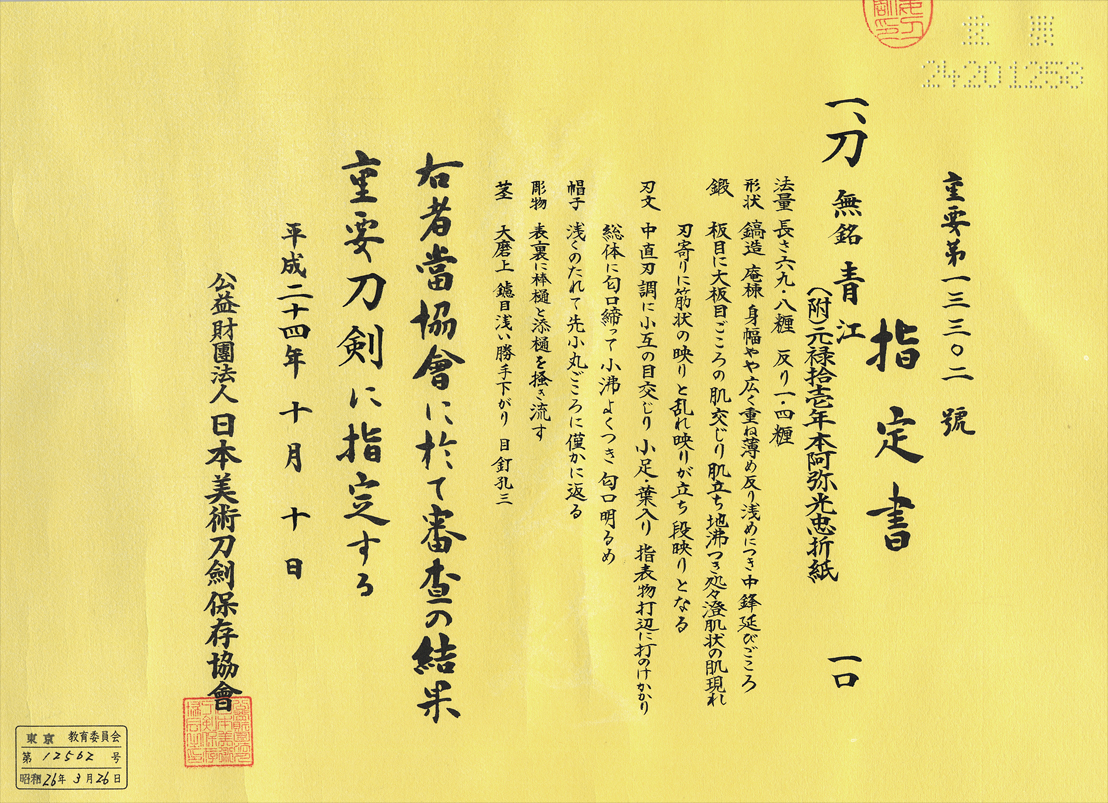 重要
24201258
重要第一三三〇二號
指定書
一、刀 無銘 青江 一口
（附）元禄拾壱年本阿弥光忠折紙
法量 長さ六九・八糎 反り一・四糎
形状 鎬造 庵棟 身幅やや広く重ね薄め反り浅めにつき中鋒延びごころ
鍛 板目に大板目ごころの肌交じり 肌立ち 地沸つき 処々澄肌状の肌現れ
刃寄りに筋状の映りと乱れ映りが立ち 段映りとなる
刃文 中直刃調に小互の目交じり 小足・葉入り 指表物打辺に打のけかかり
総体に匂口締って小沸よくつき 匂口明るめ
帽子 浅くのたれて先小丸ごころに僅かに返る
彫物 表裏に棒樋と添樋を掻き流す
茎 大磨上 鑢目浅い勝手下がり 目釘孔三
右者當協會に於て審査の結果
重要刀剣に指定する
平成二十四年 十月 十日
公益財團法人 日本美術刀劍保存協會
東京 教育委員会
第 12562 号
昭和26年3月26日